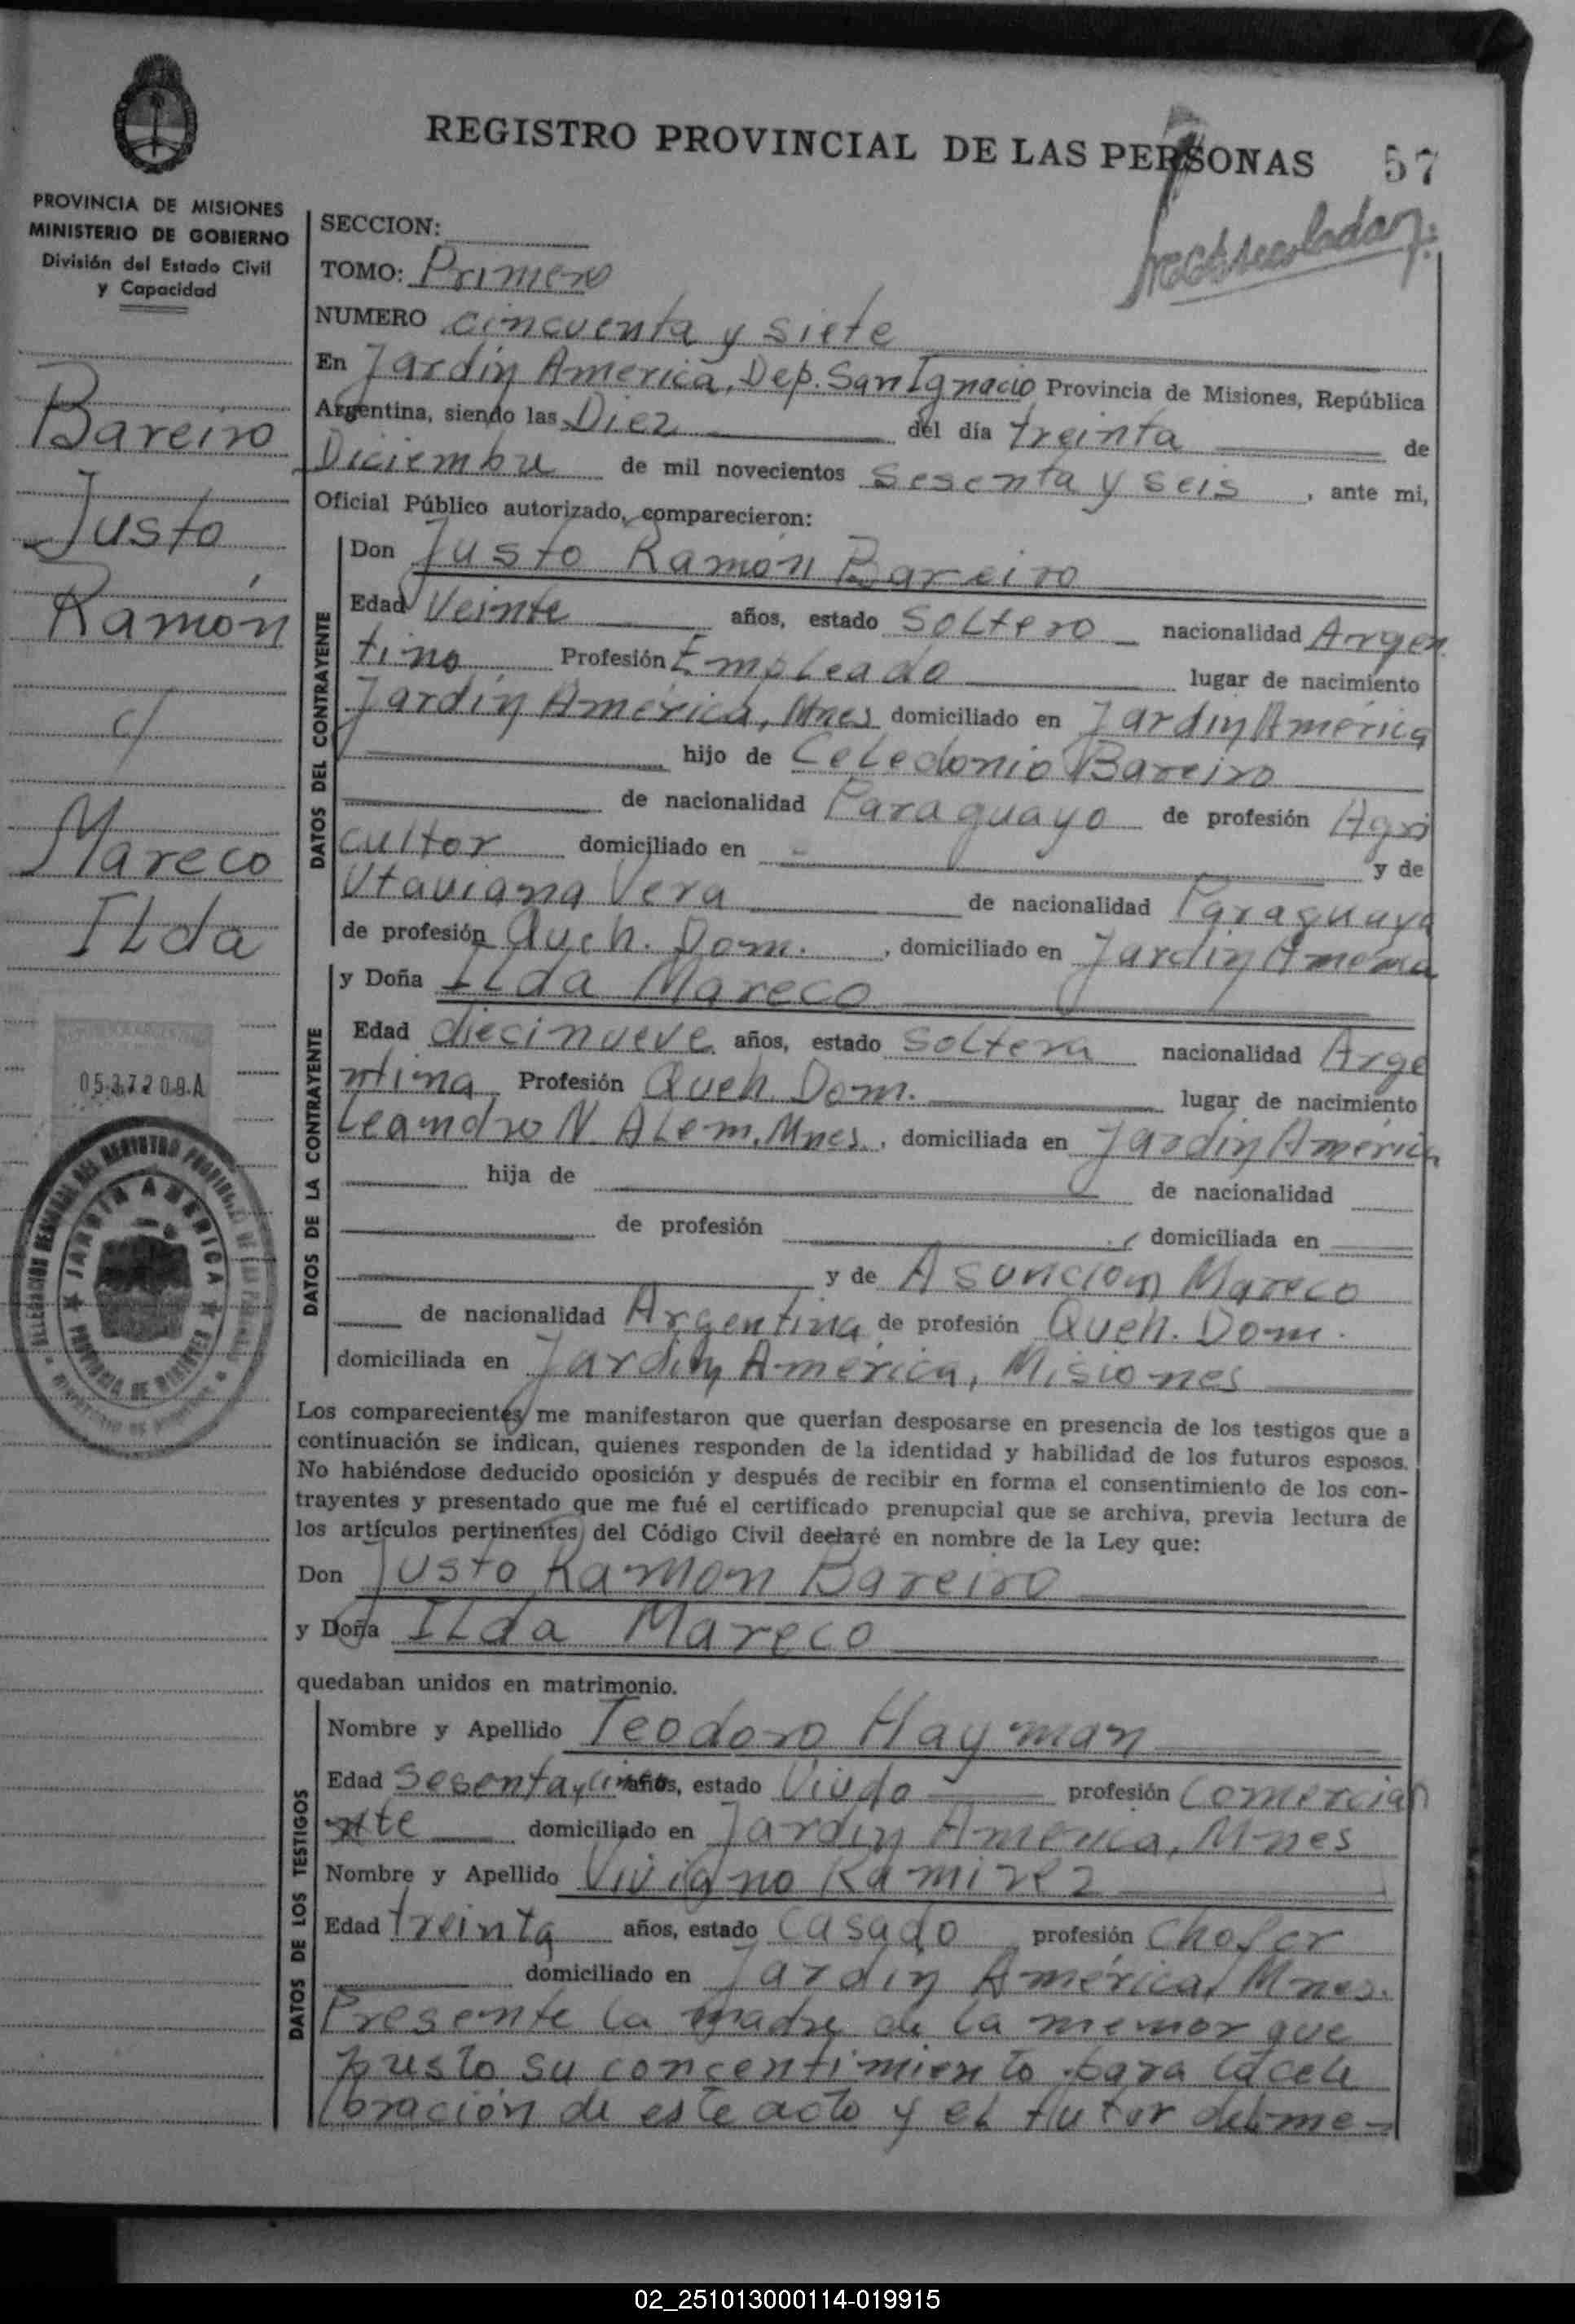 REGISTRO PROVINCIAL DE LAS PERSONAS
57
PROVINCIA DE MISIONES
MINISTERIO DE GOBIERNO
División del Estado Civil
y Capacidad
Bareiro
Justo
Ramón
c/
Mareco
ILda
0537209A
JARDIN AMERICA
PROVINCIA DE MISIONES
SECCION:
TOMO: Primero
NUMERO cincuenta y siete
En Jardín America, Dep. San Ignacio Provincia de Misiones, República
Argentina, siendo las Diez del día treinta de
Diciembre de mil novecientos sesenta y seis, ante mi,
Oficial Público autorizado, comparecieron:
DATOS DEL CONTRAYENTE
Don Justo Ramón Bareiro
Edad Veinte años, estado soltero nacionalidad Argen
tino Profesión Empleado lugar de nacimiento
Jardín América, Mnes domiciliado en Jardin América
hijo de Celedonio Bareiro
de nacionalidad Paraguayo de profesión Agri
cultor domiciliado en y de
Utaviana Vera de nacionalidad Paraguaya
de profesión Queh. Dom., domiciliado en Jardin América
DATOS DE LA CONTRAYENTE
y Doña ILda Mareco
Edad diecinueve años, estado soltera nacionalidad Arge
ntina Profesión Queh. Dom. lugar de nacimiento
Leandro N. ALem, Mnes., domiciliada en Jardin América
hija de de nacionalidad
de profesión , domiciliada en
y de Asuncion Mareco
de nacionalidad Argentina de profesión Queh. Dom.
domiciliada en Jardin América, Misiones
Los comparecientes me manifestaron que querían desposarse en presencia de los testigos que a
continuación se indican, quienes responden de la identidad y habilidad de los futuros esposos.
No habiéndose deducido oposición y después de recibir en forma el consentimiento de los con-
trayentes y presentado que me fué el certificado prenupcial que se archiva, previa lectura de
los artículos pertinentes del Código Civil declaré en nombre de la Ley que:
Don Justo Ramon Bareiro
y Doña ILda Mareco
quedaban unidos en matrimonio.
DATOS DE LOS TESTIGOS
Nombre y Apellido Teodoro Hayman
Edad Sesenta y cinco años, estado Viudo profesión Comercian
nte domiciliado en Jardin América, Mnes
Nombre y Apellido Viviano Ramirez
Edad treinta años, estado casado profesión chofer
domiciliado en Jardin América, Mnes.
Presente la madre de la menor que
pusto su concentimiento para la cele
bración de este acto y el tutor del me-
02_251013000114-019915